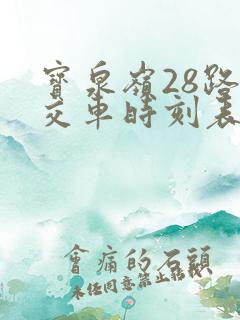 寶泉嶺28路
交車時刻表
會痛的石頭
未任同意禁止轉載